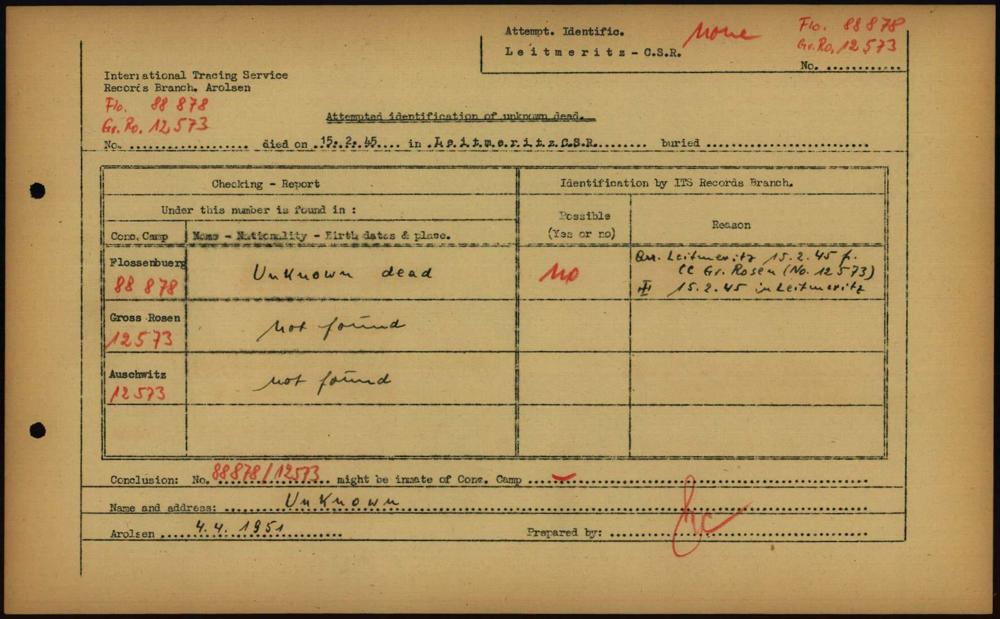 Attempt. Identific. none Flo. 88878
Leitmeritz - C.S.R. Gr.Ro. 12573
No. ............
International Tracing Service
Records Branch. Arolsen
Flo. 88 878
Gr. Ro. 12,573
Attempted identification of unknown dead.
No. .................. died on .15.2.45.... in .Leitmeritz C.S.R........ buried ........................
Checking - Report Identification by ITS Records Branch.
Under this number is found in :
Conc. Camp Name - Nationality - Birth dates & place. Possible (Yes or no) Reason
Flossenbuerg 88 878 Unknown dead no Arr. Leitmeritz 15.2.45 f.
CC Gr. Rosen (No. 12573)
15.2.45 in Leitmeritz
Gross Rosen 12573 not found
Auschwitz 12573 not found
Conclusion: No. 88878/12573 might be inmate of Conc. Camp ........................
Name and address: ....... Unknown ........................
Arolsen 4.4. 1951 Prepared by: ........................